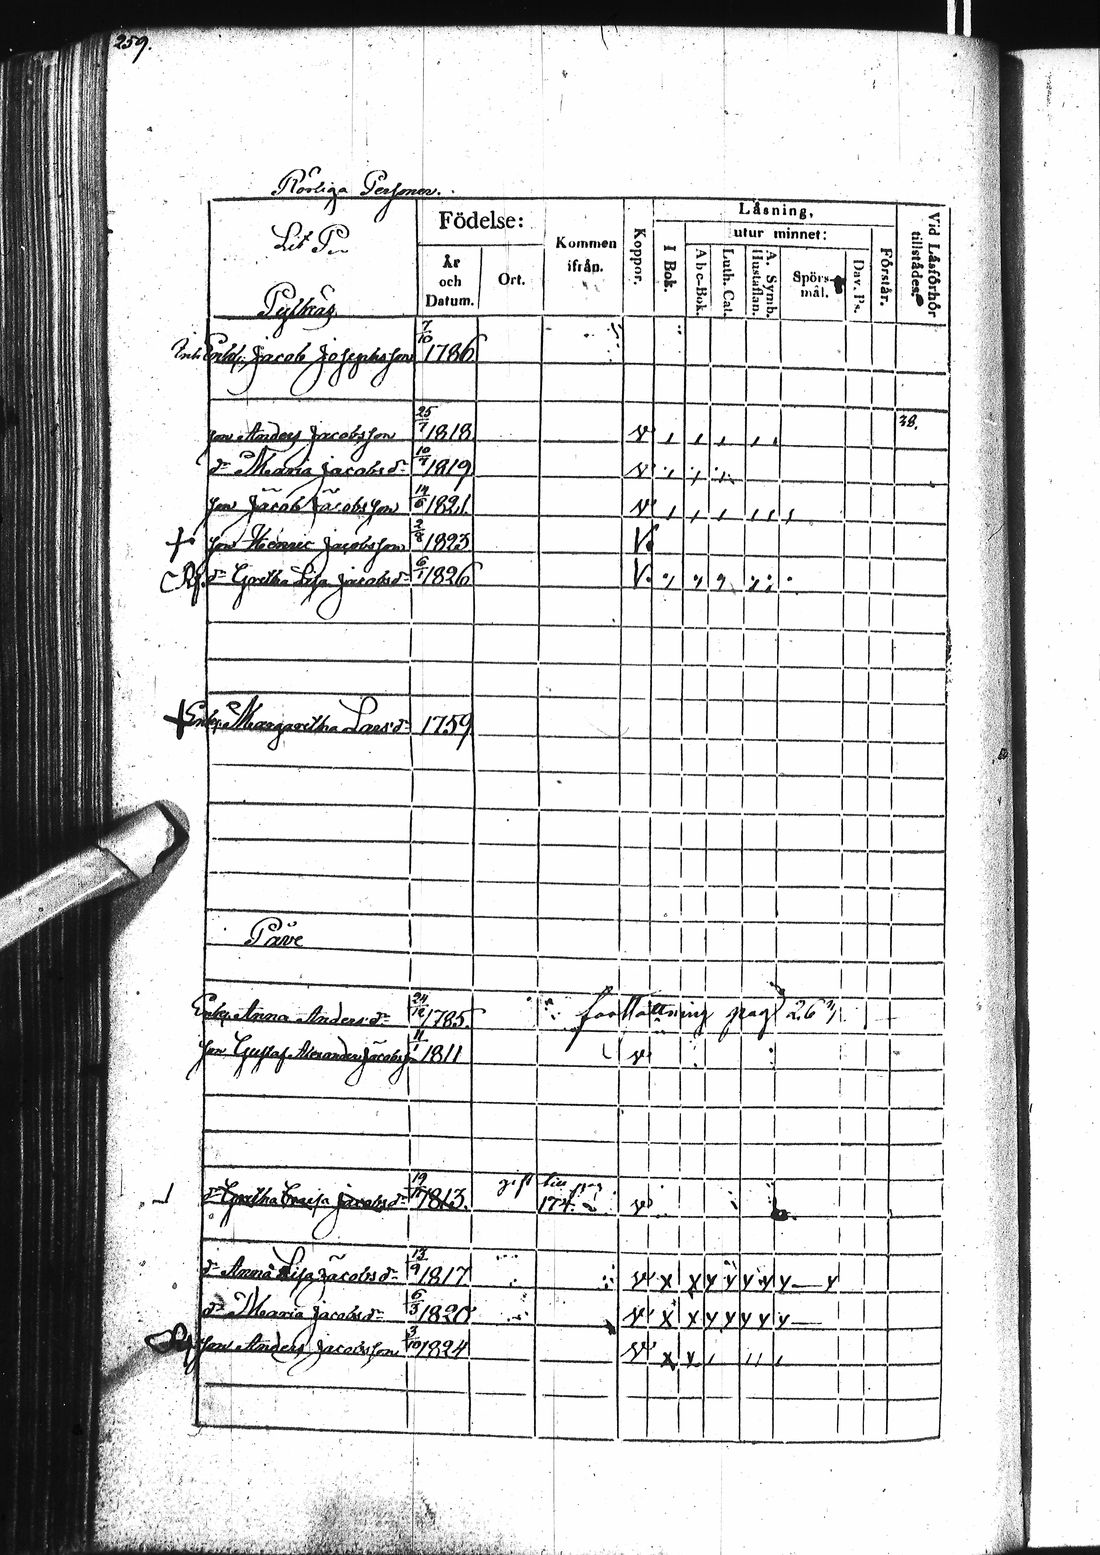 259.
Rörliga Personer.
Lit P.
Födelse:
År och Datum.
Ort.
Kommen ifrån.
Koppor.
Läsning,
I Bok.
utur minnet:
Abc-Bok.
Luth. Cat.
A. Symb. Hustaflan.
Spörs-mål.
Dav. Ps.
Förstår.
Vid Läsförhör tillstädes.
Pylkäs
Jacob Josephsson 7/10 1786
son Anders Jacobsson 25/7 1818 v 38.
dr Maria Jacobsdr 10/7 1819 v
son Jacob Jacobsson 14/6 1821 v
+ son Henric Jacobsson 2/8 1823 V.
dr Gretha Lisa Jacobsdr 6/1 1826 V.
+ Enk. Margaretha Larsdr 1759
Päve
Enk. Anna Andersdr 24/12 1785 fortsättning pag
son Gustaf Alexander Jacobsson 11/1 1811 v
dr Gretha Caisa Jacobsdr 1813. gift 174. v
dr Anna Lisa Jacobsdr 13/9 1817 v x x y y y y y — y
dr Maria Jacobsdr 6/3 1820 v x x y y y y y —
son Anders Jacobsson 3/10 1824 v x x